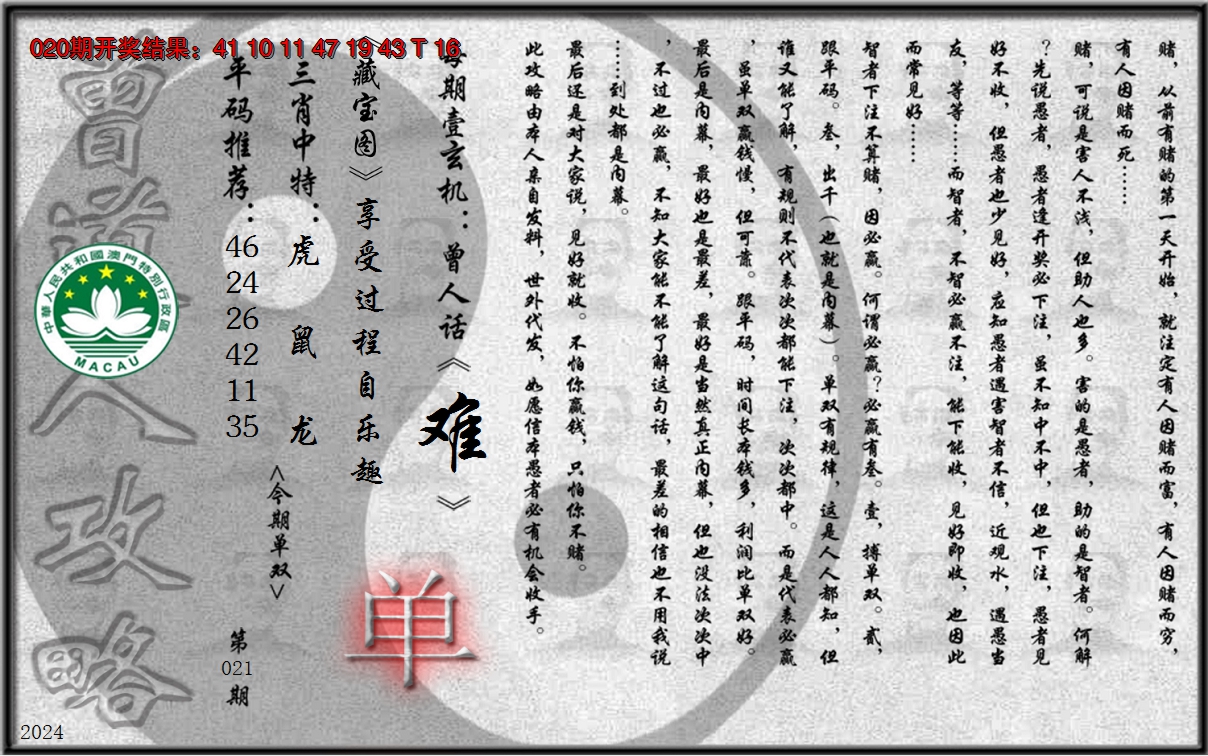 020期开奖结果：41 10 11 47 19 43 T 16
赌，从前有赌的第一天开始，就注定有人因赌而富，有人因赌而穷，
有人因赌而死……
赌，可说是害人不浅，但助人也多。害的是愚者，助的是智者。何解
？先说愚者，愚者逢开奖必下注，虽不知中不中，但也下注，愚者见
好不收，但愚者也少见好，应知愚者遇害智者不信，近观水，遇愚当
友，等等……而智者，不智必赢不注，能下能收，见好即收，也因此
而常见好……
智者下注不算赌，因必赢。何谓必赢？必赢有叁。壹，搏单双。贰，
跟平码。叁，出千（也就是内幕）。单双有规律，这是人人都知，但
谁又能了解，有规则不代表次次都能下注，次次都中。而是代表必赢
，虽单双赢钱慢，但可靠。跟平码，时间长本钱多，利润比单双好。
最后是内幕，最好也是最差，最好是当然真正内幕，但也没法次次中
，不过也必赢，不知大家能不能了解这句话，最差的相信也不用我说
……到处都是内幕。
最后还是对大家说，见好就收。不怕你赢钱，只怕你不赌。
此攻略由本人亲自发料，世外代发，如愿信本愚者必有机会收手。
每期壹玄机：曾人话《难》
《藏宝图》享受过程自乐趣
单
三肖中特：虎 鼠 龙
<今期单双>
平码推荐：46 24 26 42 11 35
第021期
曾道人攻略
中華人民共和國澳門特別行政區
MACAU
2024